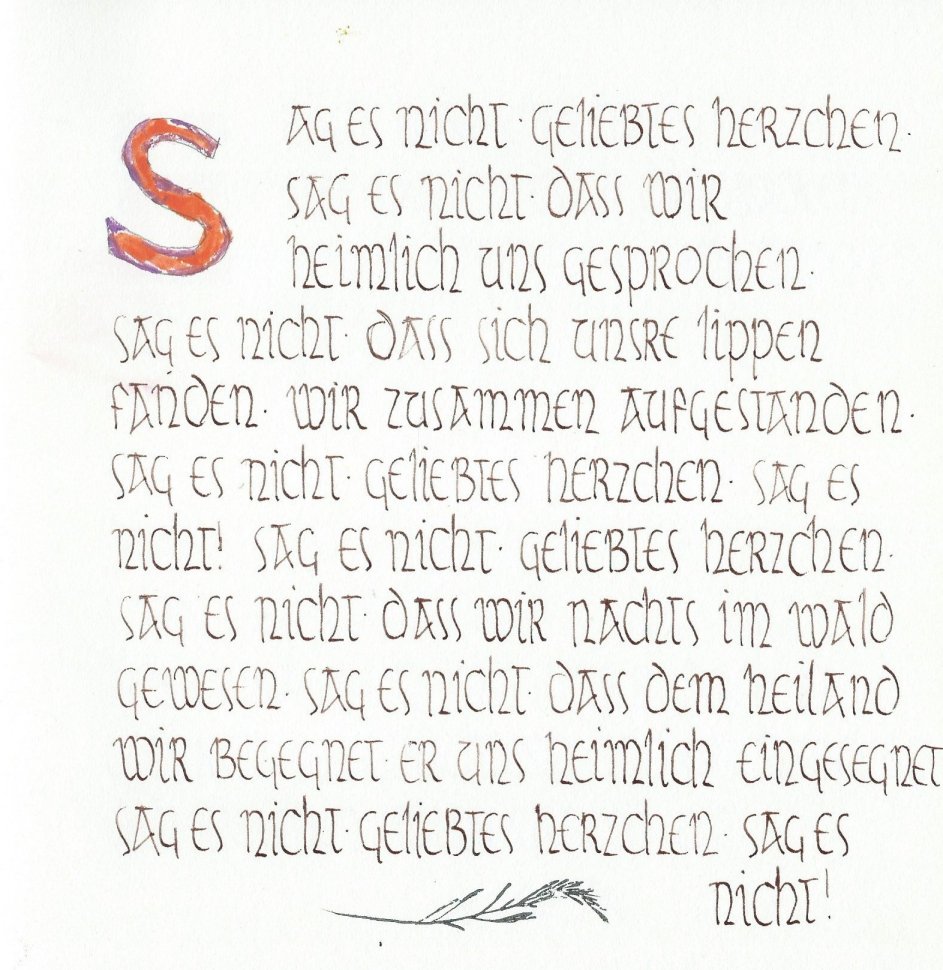 SAG ES NICHT · GELIEBTES HERZCHEN ·
SAG ES NICHT · DASS WIR
HEIMLICH UNS GESPROCHEN ·
SAG ES NICHT · DASS SICH UNSRE LIPPEN
FANDEN · WIR ZUSAMMEN AUFGESTANDEN ·
SAG ES NICHT · GELIEBTES HERZCHEN · SAG ES
NICHT! SAG ES NICHT · GELIEBTES HERZCHEN ·
SAG ES NICHT · DASS WIR NACHTS IM WALD
GEWESEN · SAG ES NICHT · DASS DEM HEILAND
WIR BEGEGNET · ER UNS HEIMLICH EINGESEGNET
SAG ES NICHT · GELIEBTES HERZCHEN · SAG ES
NICHT!